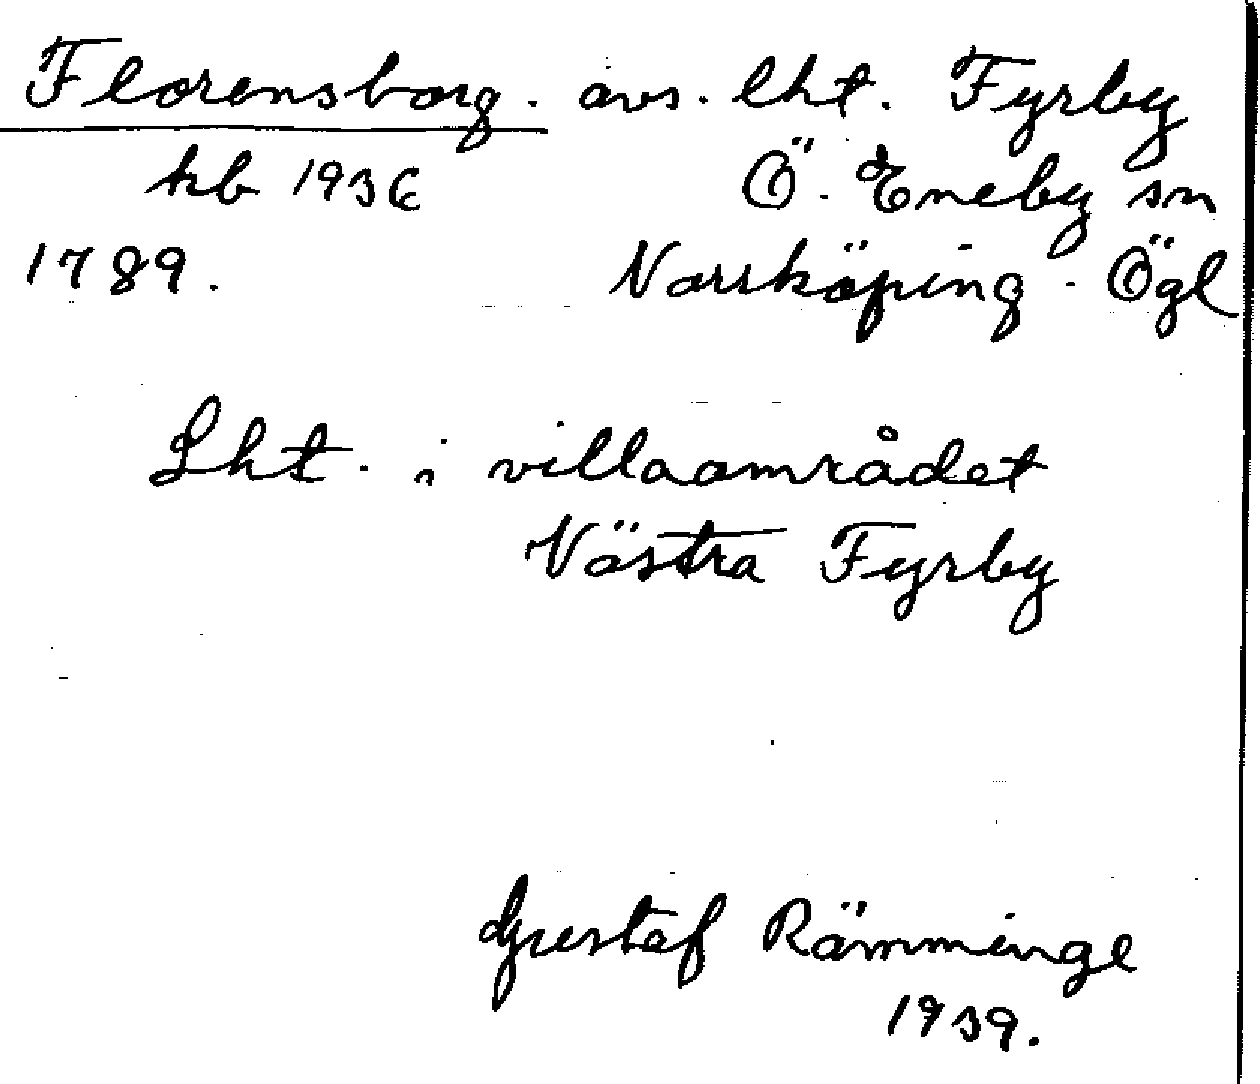 Florensborg. avs. lht. Fyrby
kb 1936 Ö. Eneby sn
1789. Norrköping. Ögl
Lht. i villaområdet
Västra Fyrby
Gustaf Rämminge
1939.